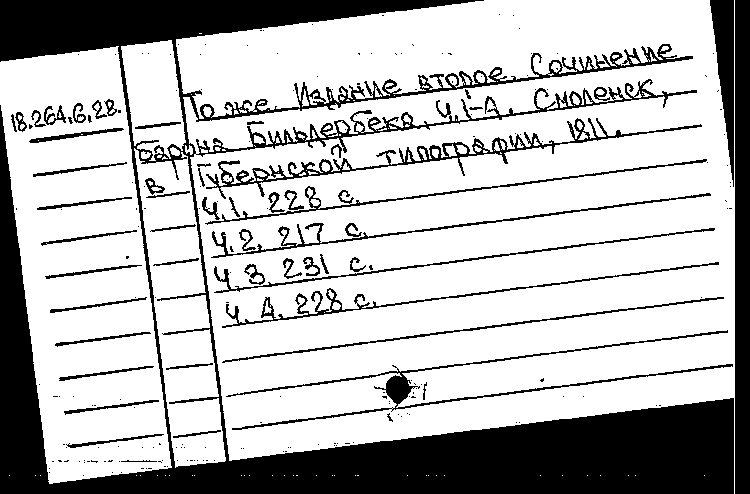 18.264.6.28.
То же. Издание второе. Сочинение
барона Бильдербека, Ч.1-4. Смоленск,
в Губернской типографии, 1811.
Ч.1. 228 с.
Ч.2. 217 с.
Ч.3. 231 с.
Ч.4. 228 с.